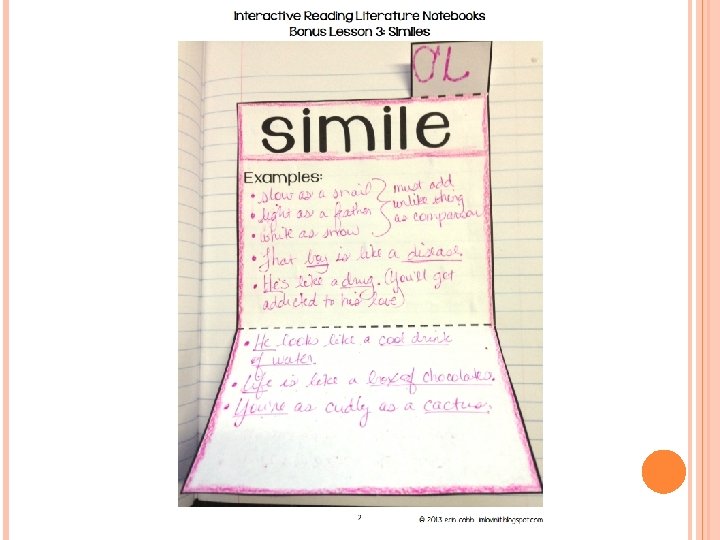 Interactive Reading Literature Notebooks
Bonus Lesson 3: Similes
simile
Examples:
• slow as a snail
• light as a feather
• white as snow
must add
unlike thing
as comparison
• That boy is like a disease.
• He's like a drug. (You'll get
addicted to his love)
• He looks like a cool drink
of water.
• Life is like a box of chocolates.
• You're as cudly as a cactus.
2
© 2013 erin cobb imlovinlit.blogspot.com